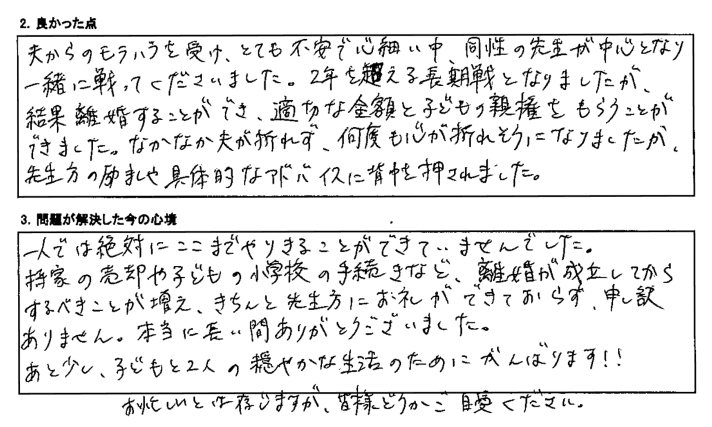 2. 良かった点
夫からのモラハラを受け、とても不安で心細い中、同性の先生が中心となり
一緒に戦ってくださいました。2年を超える長期戦となりましたが、
結果離婚することができ、適切な金額と子どもの親権をもらうことが
できました。なかなか夫が折れず、何度も心が折れそうになりましたが、
先生方の励ましや具体的なアドバイスに背中を押されました。
3. 問題が解決した今の心境
一人では絶対にここまでやりきることができていませんでした。
持家の売却や子どもの小学校の手続きなど、離婚が成立してから
するべきことが増え、きちんと先生方にお礼ができておらず、申し訳
ありません。本当に長い間ありがとうございました。
あと少し、子どもと2人の穏やかな生活のためにがんばります!!
お忙しいとは存じますが、皆様どうかご自愛ください。